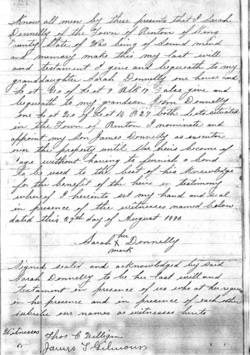 Know all men by these presents that I Sarah
Donnelly of the Town of Renton of King
County State of Wa being of sound mind
and memory make this my last will
and testament I give and bequeath to my
granddaughter Sarah Donnelly one house and
lot No of Lot 9 Blk 17 I also give and
bequeath to my grandson Donnelly
one lot No of Lot 16 B 27 both lots situated
in the Town of Renton I nominate and
appoint my son James Donnelly as executor
over the property until the heirs become of
age without having to furnish a bond
to be used to the best of his knowledge
for the benefit of the heirs in testimony
whereof I hereunto set my hand and seal
in presence of witnesses named below
dated this day of August
her
Sarah X Donnelly
mark
Signed sealed and acknowledged by said
Sarah Donnelly to be her last will and
testament in presence of us who at her request
in her presence and in presence of each other
subscribe our names as witnesses hereto
Witnesses
Thos C
James S Gilmour